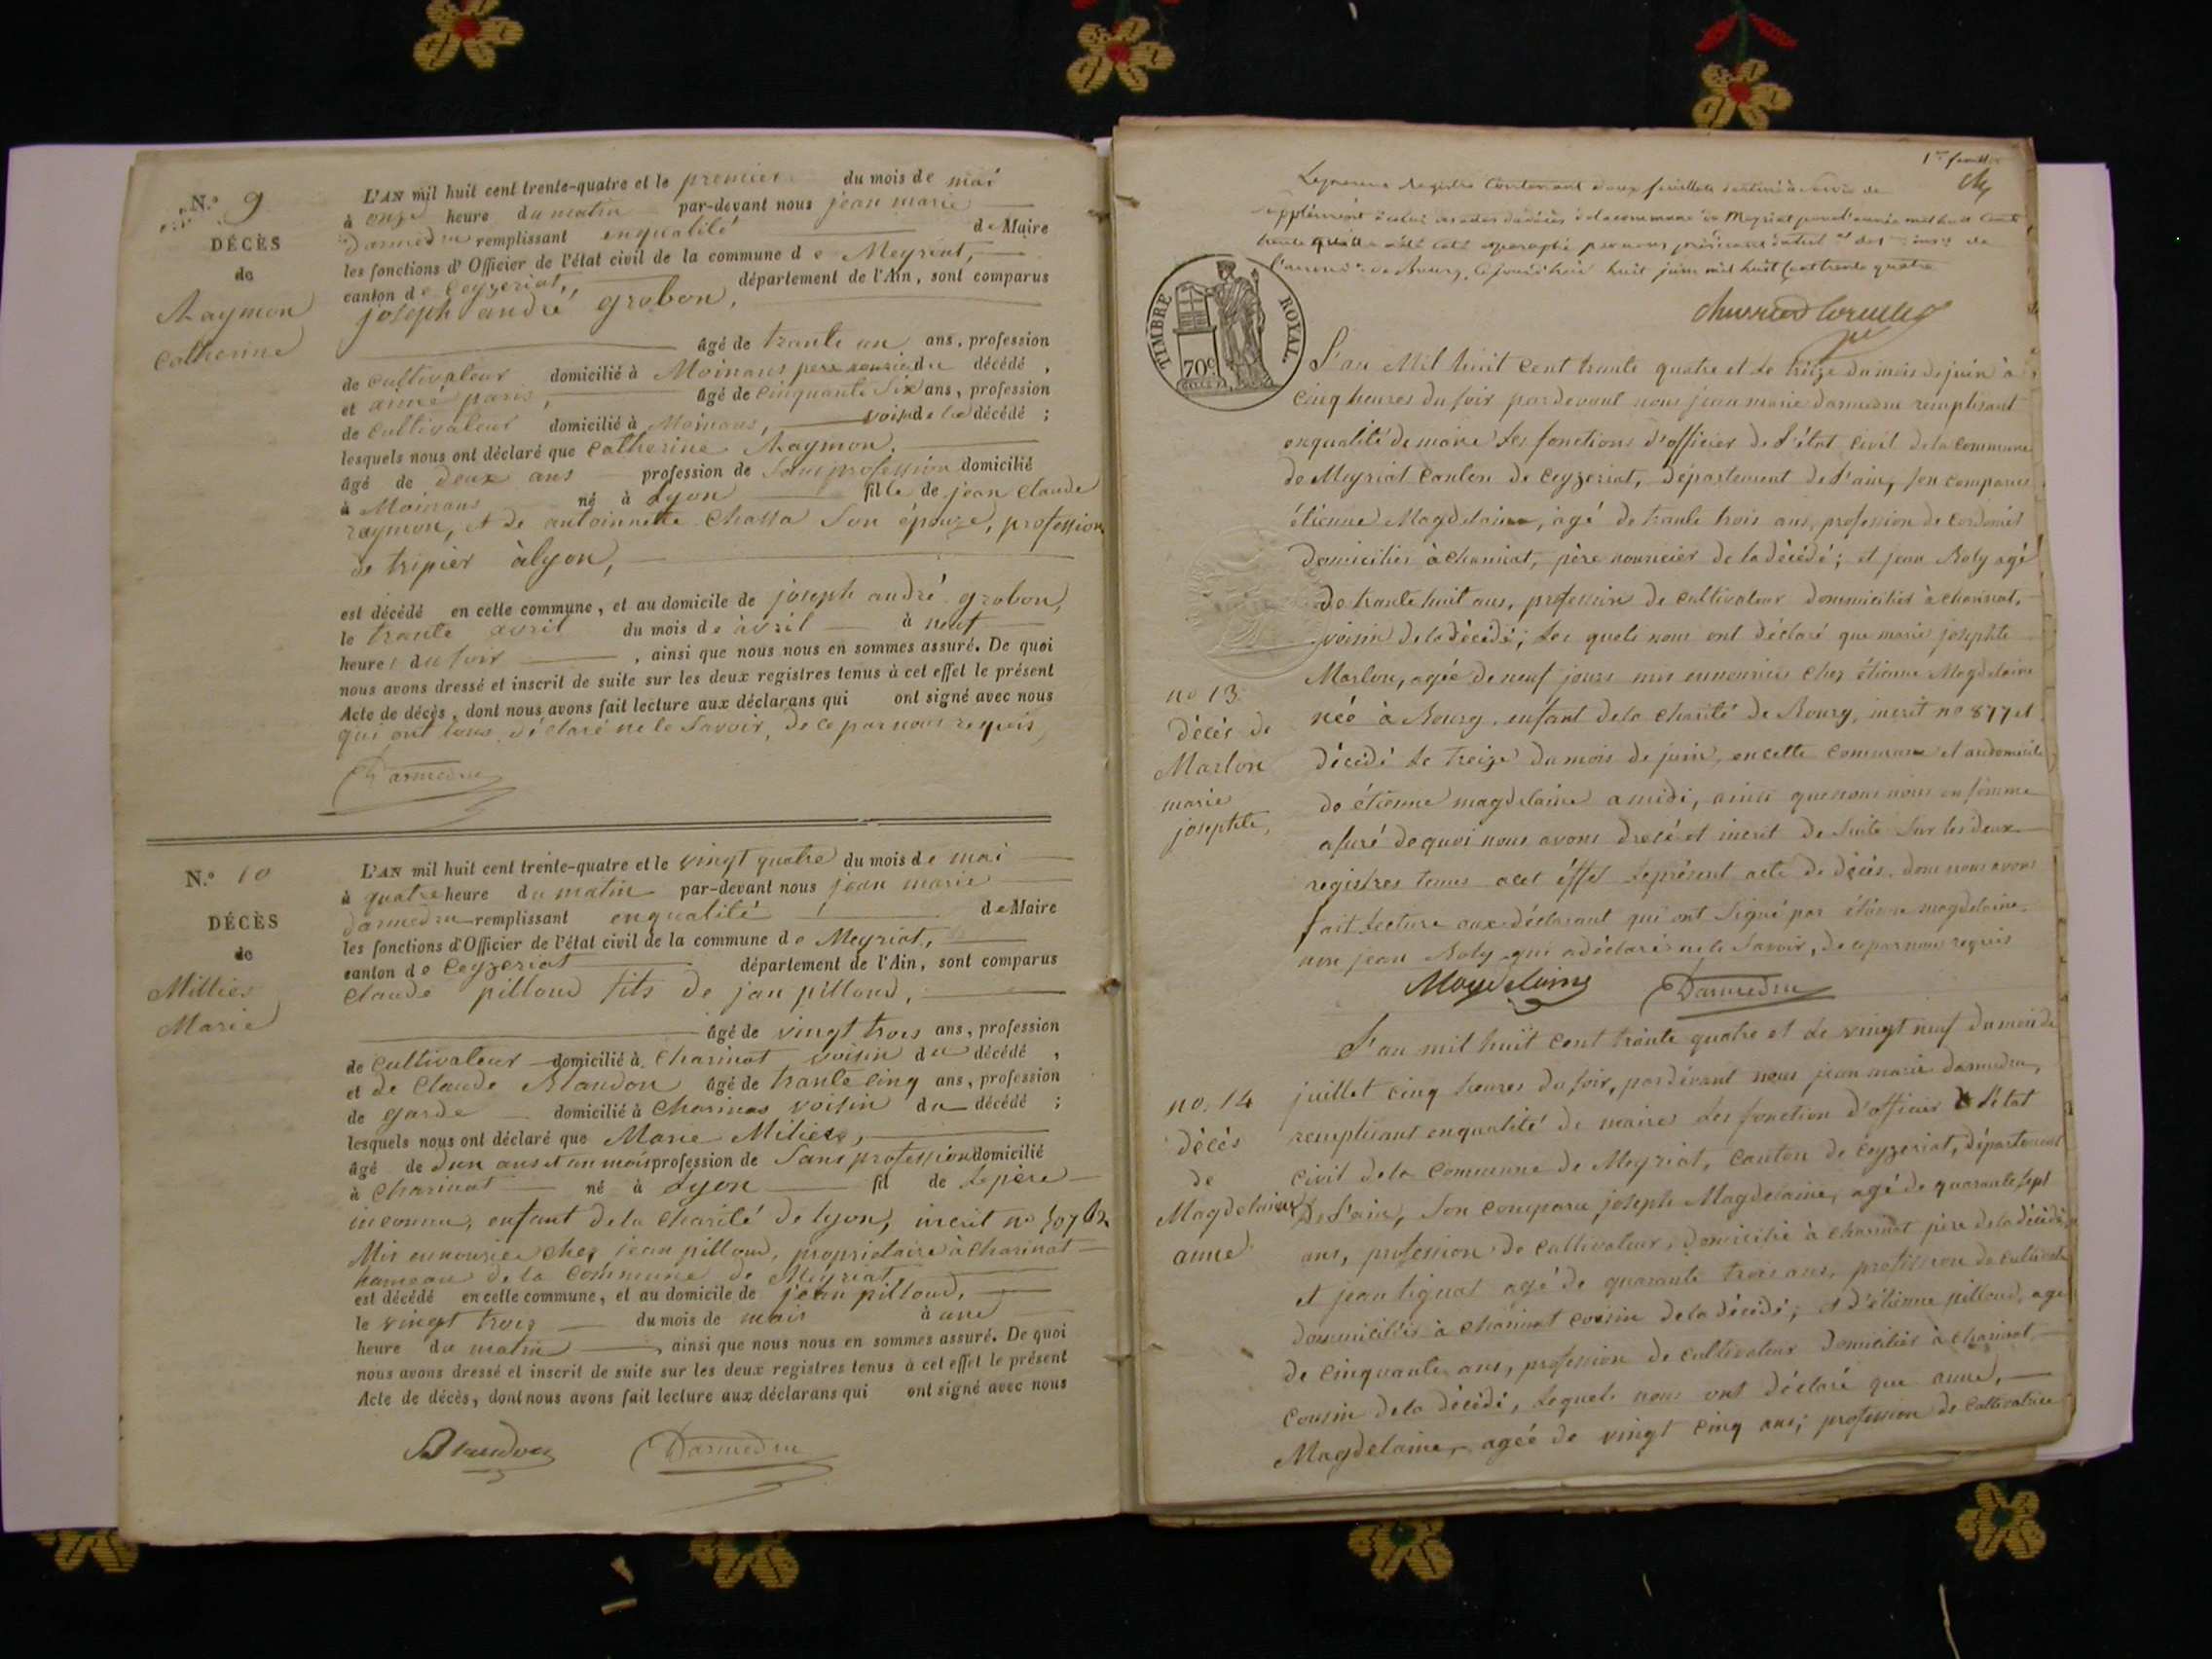 N.° 9
DÉCÈS
de
Raymon
Catherine
L'AN mil huit cent trente-quatre et le premier du mois de mai
à onze heure du matin par-devant nous jean marie
Darmedru remplissant enqualité de Maire
les fonctions d'Officier de l'état civil de la commune de Meyriat,
canton de Ceyzeriat, département de l'Ain, sont comparus
joseph andré grobon,
âgé de trante un ans, profession
de cultivateur domicilié à Moinans pere nouricier du décédé,
et aimé paris, âgé de cinquante Six ans, profession
de cultivateur domicilié à Moinans, voisin de la décédé;
lesquels nous ont déclaré que Catherine Raymon,
âgé de deux ans profession de Sans profession domicilié
à Moinans né à Lyon fille de jean Claude
raymon, et de antoinnette Chassa Son épouze, profession
de tripier àlyon,
est décédé en cette commune, et au domicile de joseph andré grobon,
le trante avril du mois de avril à neuf
heures du soir, ainsi que nous nous en sommes assuré. De quoi
nous avons dressé et inscrit de suite sur les deux registres tenus à cet effet le présent
Acte de décès, dont nous avons fait lecture aux déclarans qui ont signé avec nous
qui ont tous déclaré ne le Savoir, de ce par nous requis,
Darmedru
N.° 10
DÉCÈS
de
Millies
Marie
L'AN mil huit cent trente-quatre et le vingt quatre du mois de mai
à quatre heure du matin par-devant nous jean marie
Darmedru remplissant enqualité de Maire
les fonctions d'Officier de l'état civil de la commune de Meyriat,
canton de Ceyzeriat département de l'Ain, sont comparus
Claude pilloud fils de jan pilloud,
âgé de vingt trois ans, profession
de cultivateur domicilié à Charinat voisin du décédé,
et de Claude Blandon âgé de trante cinq ans, profession
de garde domicilié à Charinas voisin du décédé;
lesquels nous ont déclaré que Marie Milies,
âgé de d'un ans et un mois profession de Sans profession domicilié
à Charinat né à Lyon fil de Le père
inconnu, enfant dela Charité de lyon, inscrit n°
Mis ennourice chez jean pilloud, proprietaire à Charinat
hameau de la Commune de Meyriat
est décédé en cette commune, et au domicile de jean pilloud,
le vingt trois du mois de mais à une
heure du matin, ainsi que nous nous en sommes assuré. De quoi
nous avons dressé et inscrit de suite sur les deux registres tenus à cet effet le présent
Acte de décès, dont nous avons fait lecture aux déclarans qui ont signé avec nous
Blandon Darmedru
1er feuillet
Le présent Registre Contenant deux feuillets destiné à servir de
supplément à celui des actes de décès de la commune de Meyriat pour l'année mil huit Cent
trente quatre a été coté et paraphé par nous président du tribunal de
l'arrond. de Bourg, Cejourd'hui huit juin mil huit Cent trente quatre
TIMBRE ROYAL.
70c
L'an Mil huit cent trante quatre et le treize du mois de juin à
cinq heures du soir pardevant nous jean marie darmedru remplisant
enqualité de maire Les fonctions d'officier de L'état civil dela commune
de Meyriat Canton de Ceyzeriat, département de L'ain, son comparus
étienne Magdelaine, agé de trante trois ans, profession de Cordonier
domicilier à Charinat, père nouricier de la décédé; et jean Boly agé
de trante huit ans, profession de cultivateur dommicilier à charinat,
voisin de la décédé; Les quels nous ont déclaré que marie josephte
Marlon, agée de neuf jours mis ennourice chez étienne Magdelaine
née à Bourg, enfant dela charité de Bourg, inscrit no 877 et
décédé Le treize du mois de juin, encette commune et audomicile
de étienne magdelaine a midi, ainsi que nous nous en somme
asuré de quoi nous avons dresé et inscrit de Suite Sur les deux
registres tenus acet éffet Leprésent acte de décès, dont nous avons
fait Lecture aux déclarant qui ont Signé par étienne magdelaine.
non jean Boly qui a déclaré ne le Savoir, de ce par nous requis
Magdelaine Darmedru
no 13.
décès de
Marlon
marie
josephte,
L'an mil huit cent trante quatre et Le vingt neuf du mois de
juillet cinq heures du soir, pardevant nous jean marie darmedru,
remplisant enqualité de maire Les fonction d'officier de L'état
civil dela Commune de Meyriat, Canton de Ceyzeriat, département
De L'ain, Son comparu joseph Magdelaine, agé de quarante sept
ans, profession de cultivateur, domicilié à charinat père dela décédé,
et jean tignat agé de quarante trois ans, profession de cultivateur
dommicilier à charinat cousin dela décédé; et d'étienne pilloud, agé
de cinquante ans, profession de cultivateur domicilier à charinat
cousin dela décédé, Lequels nous ont déclaré que anne,
Magdelaine, agée de vingt cinq ans, profession de Cultivatrice
no. 14
décès
de
Magdelaine
anne